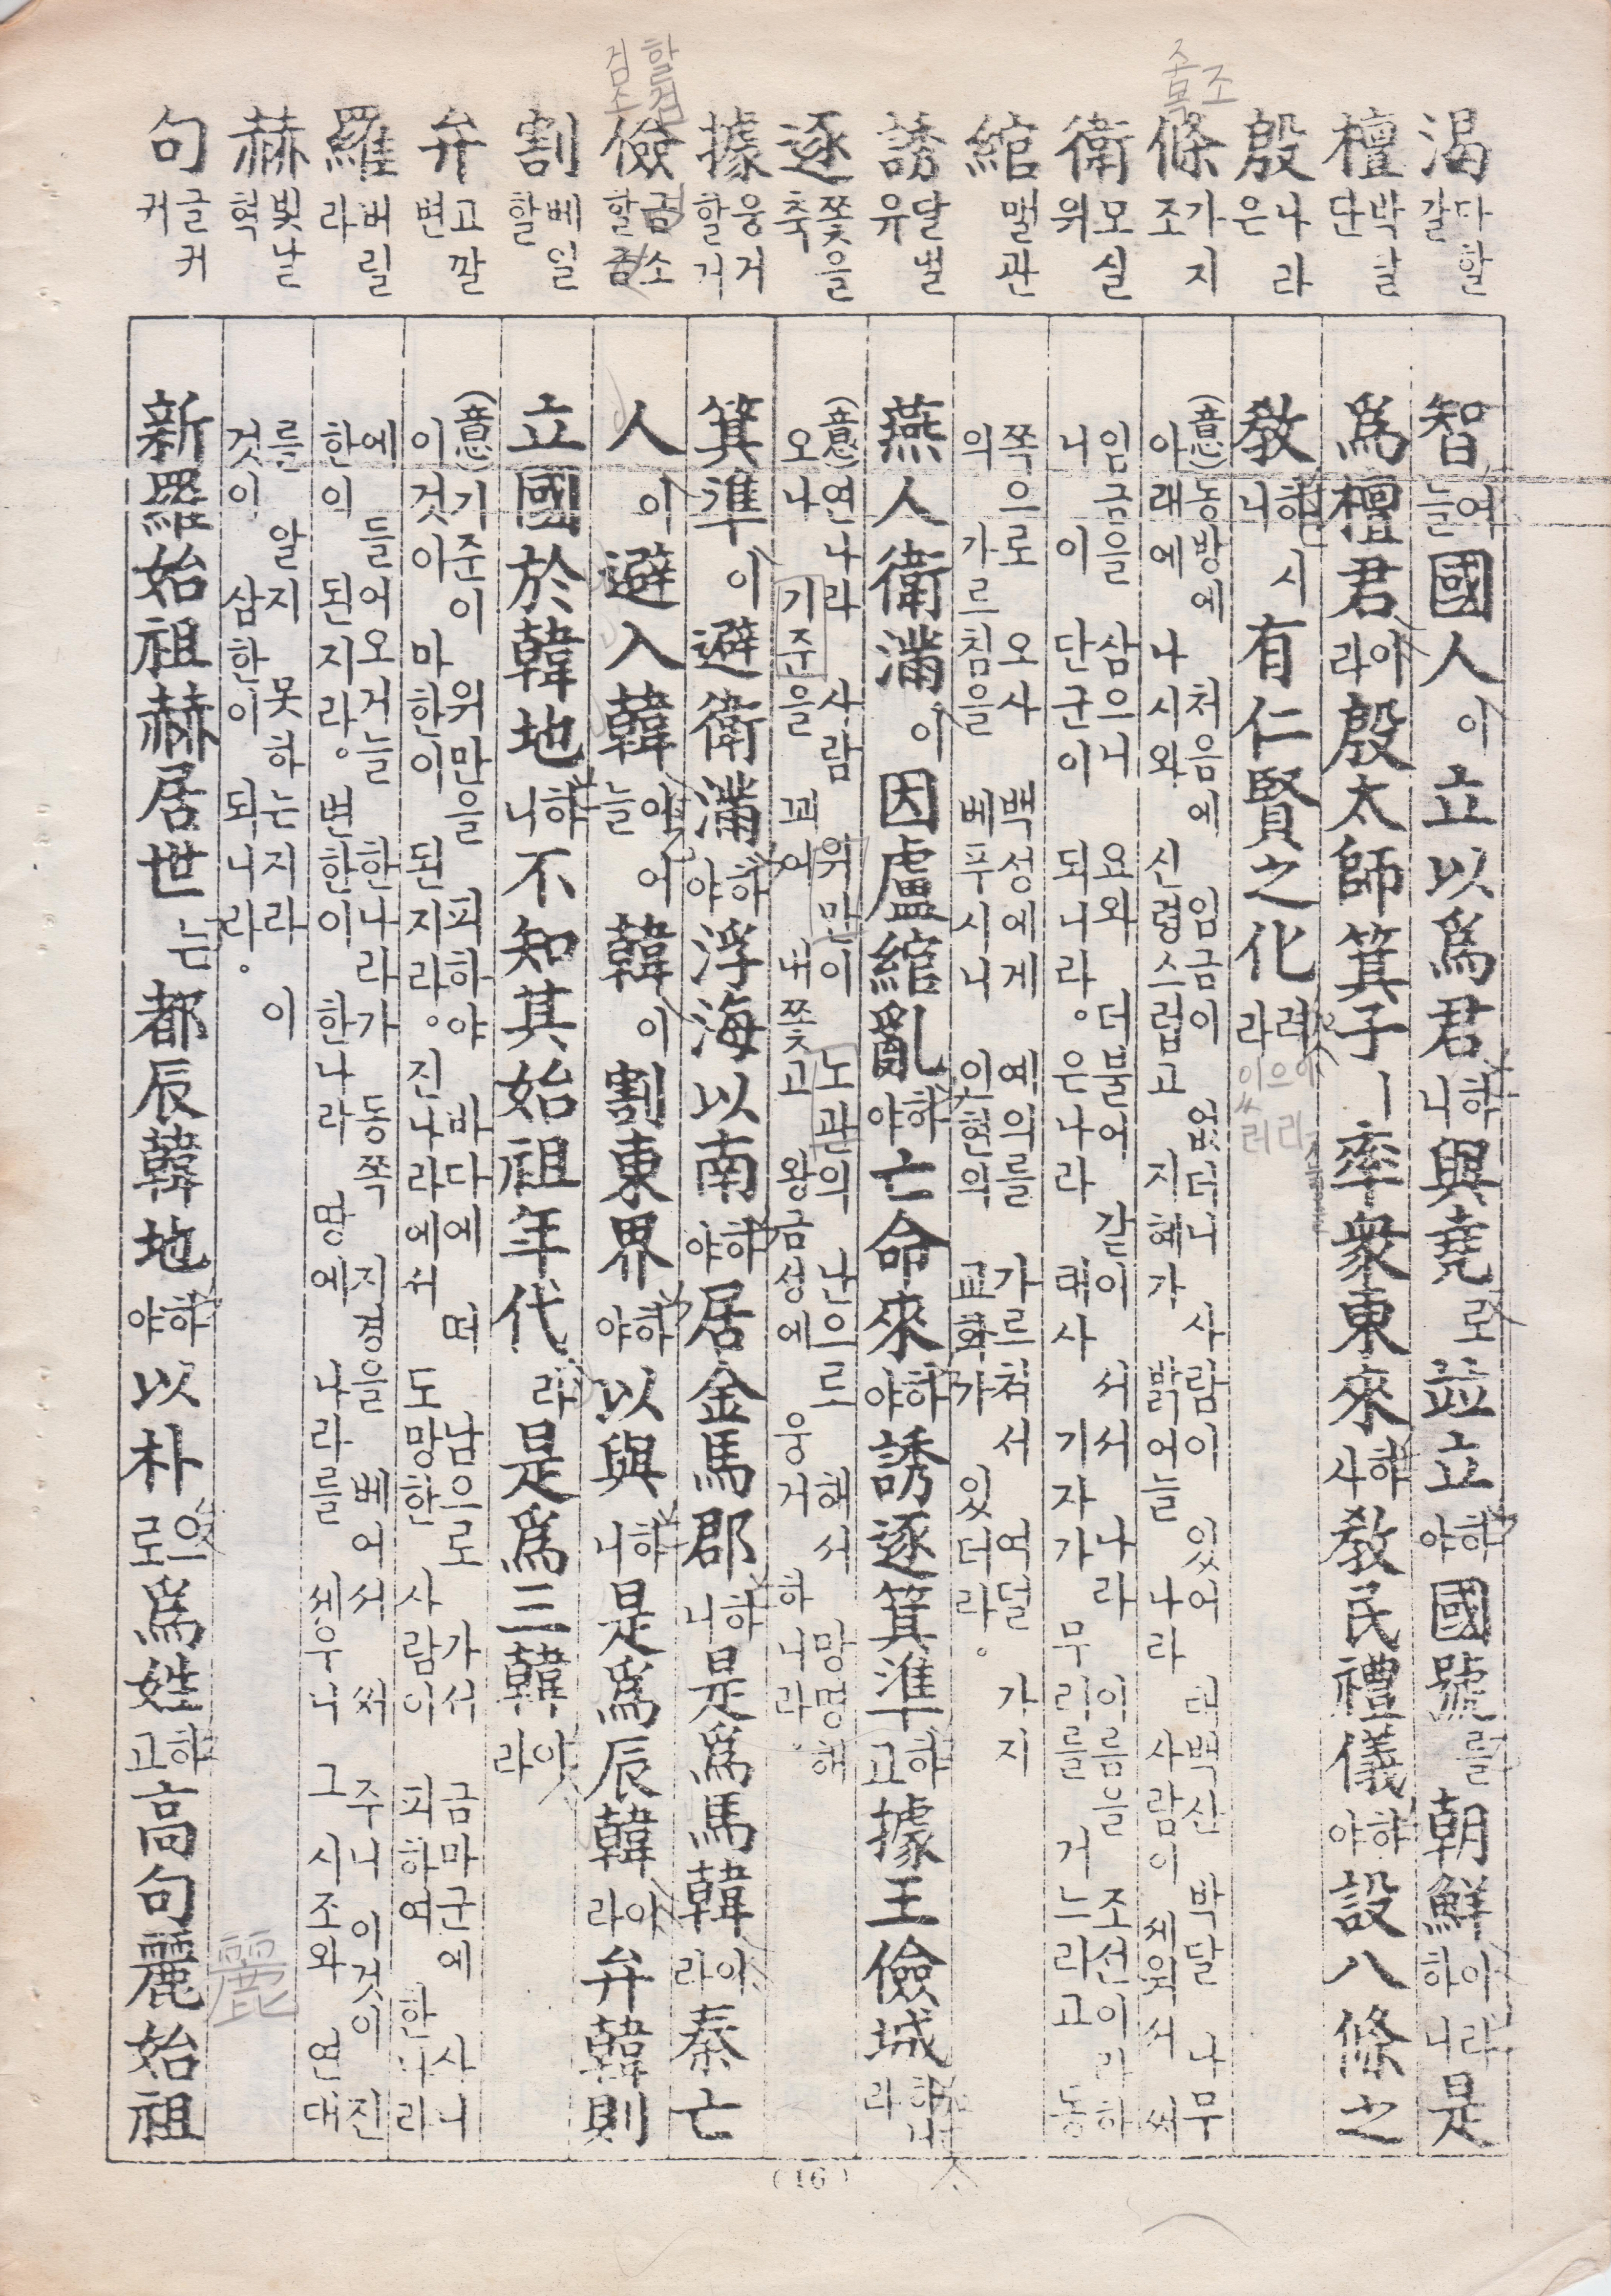 渴 다할 갈
檀 박달 단
殷 나라 은
條 가지 조
衛 모실 위
綰 맬 관
誘 달랠 유
逐 쫓을 축
據 웅거할 거
儉 검소할 검
割 베일 할
弁 고깔 변
羅 버릴 라
赫 빛날 혁
句 글귀 귀
智여늘國人이立以爲君하니與堯로並立하야國號를朝鮮이라하니是
爲檀君이라殷太師箕子ㅣ率衆東來하사敎民禮儀하야設八條之
敎하시니有仁賢之化러라
(意)동방에 처음에 임금이 없더니 사람이 있어 태백산 박달 나무
아래에 나시와 신령스럽고 지혜가 밝어늘 나라 사람이 세워서 써
임금을 삼으니 요와 더불어 같이 서서 나라 이름을 조선이라하
니 이 단군이 되니라。은나라 태사 기자가 무리를 거느리고 동
쪽으로 오사 백성에게 예의를 가르처서 여덜 가지
의 가르침을 베푸시니 인현의 교화가 있더라。
燕人衛滿이因盧綰亂하야亡命來하야誘逐箕準하고據王儉城하니라
(意)연나라 사람 위만이 노관의 난으로 해서 망명해
오나 기준을 꾀여 내쫓고 왕금성에 웅거 하니라。
箕準이避衛滿하야浮海以南하야居金馬郡하니是爲馬韓이라秦亡
人이避入韓이어늘韓이割東界하야以與하니是爲辰韓이라弁韓則
立國於韓地하니不知其始祖年代라是爲三韓이라
(意)기준이 위만을 피하야 바다에 떠 남으로 가서 금마군에 사니
이것아 마한이 된지라。진나라에서 도망한 사람이 피하여 한나라
에 들어오거늘 한나라가 동쪽 지경을 베어서 써 주니 이것이 진
한의 된지라。변한이 한나라 땅에 나라를 세우니 그 시조와 연대
를 알지 못하는지라 이
것이 삼한이 되니라。
新羅始祖赫居世는都辰韓地하야以朴으로爲姓하고高句麗始祖
麗
(16)